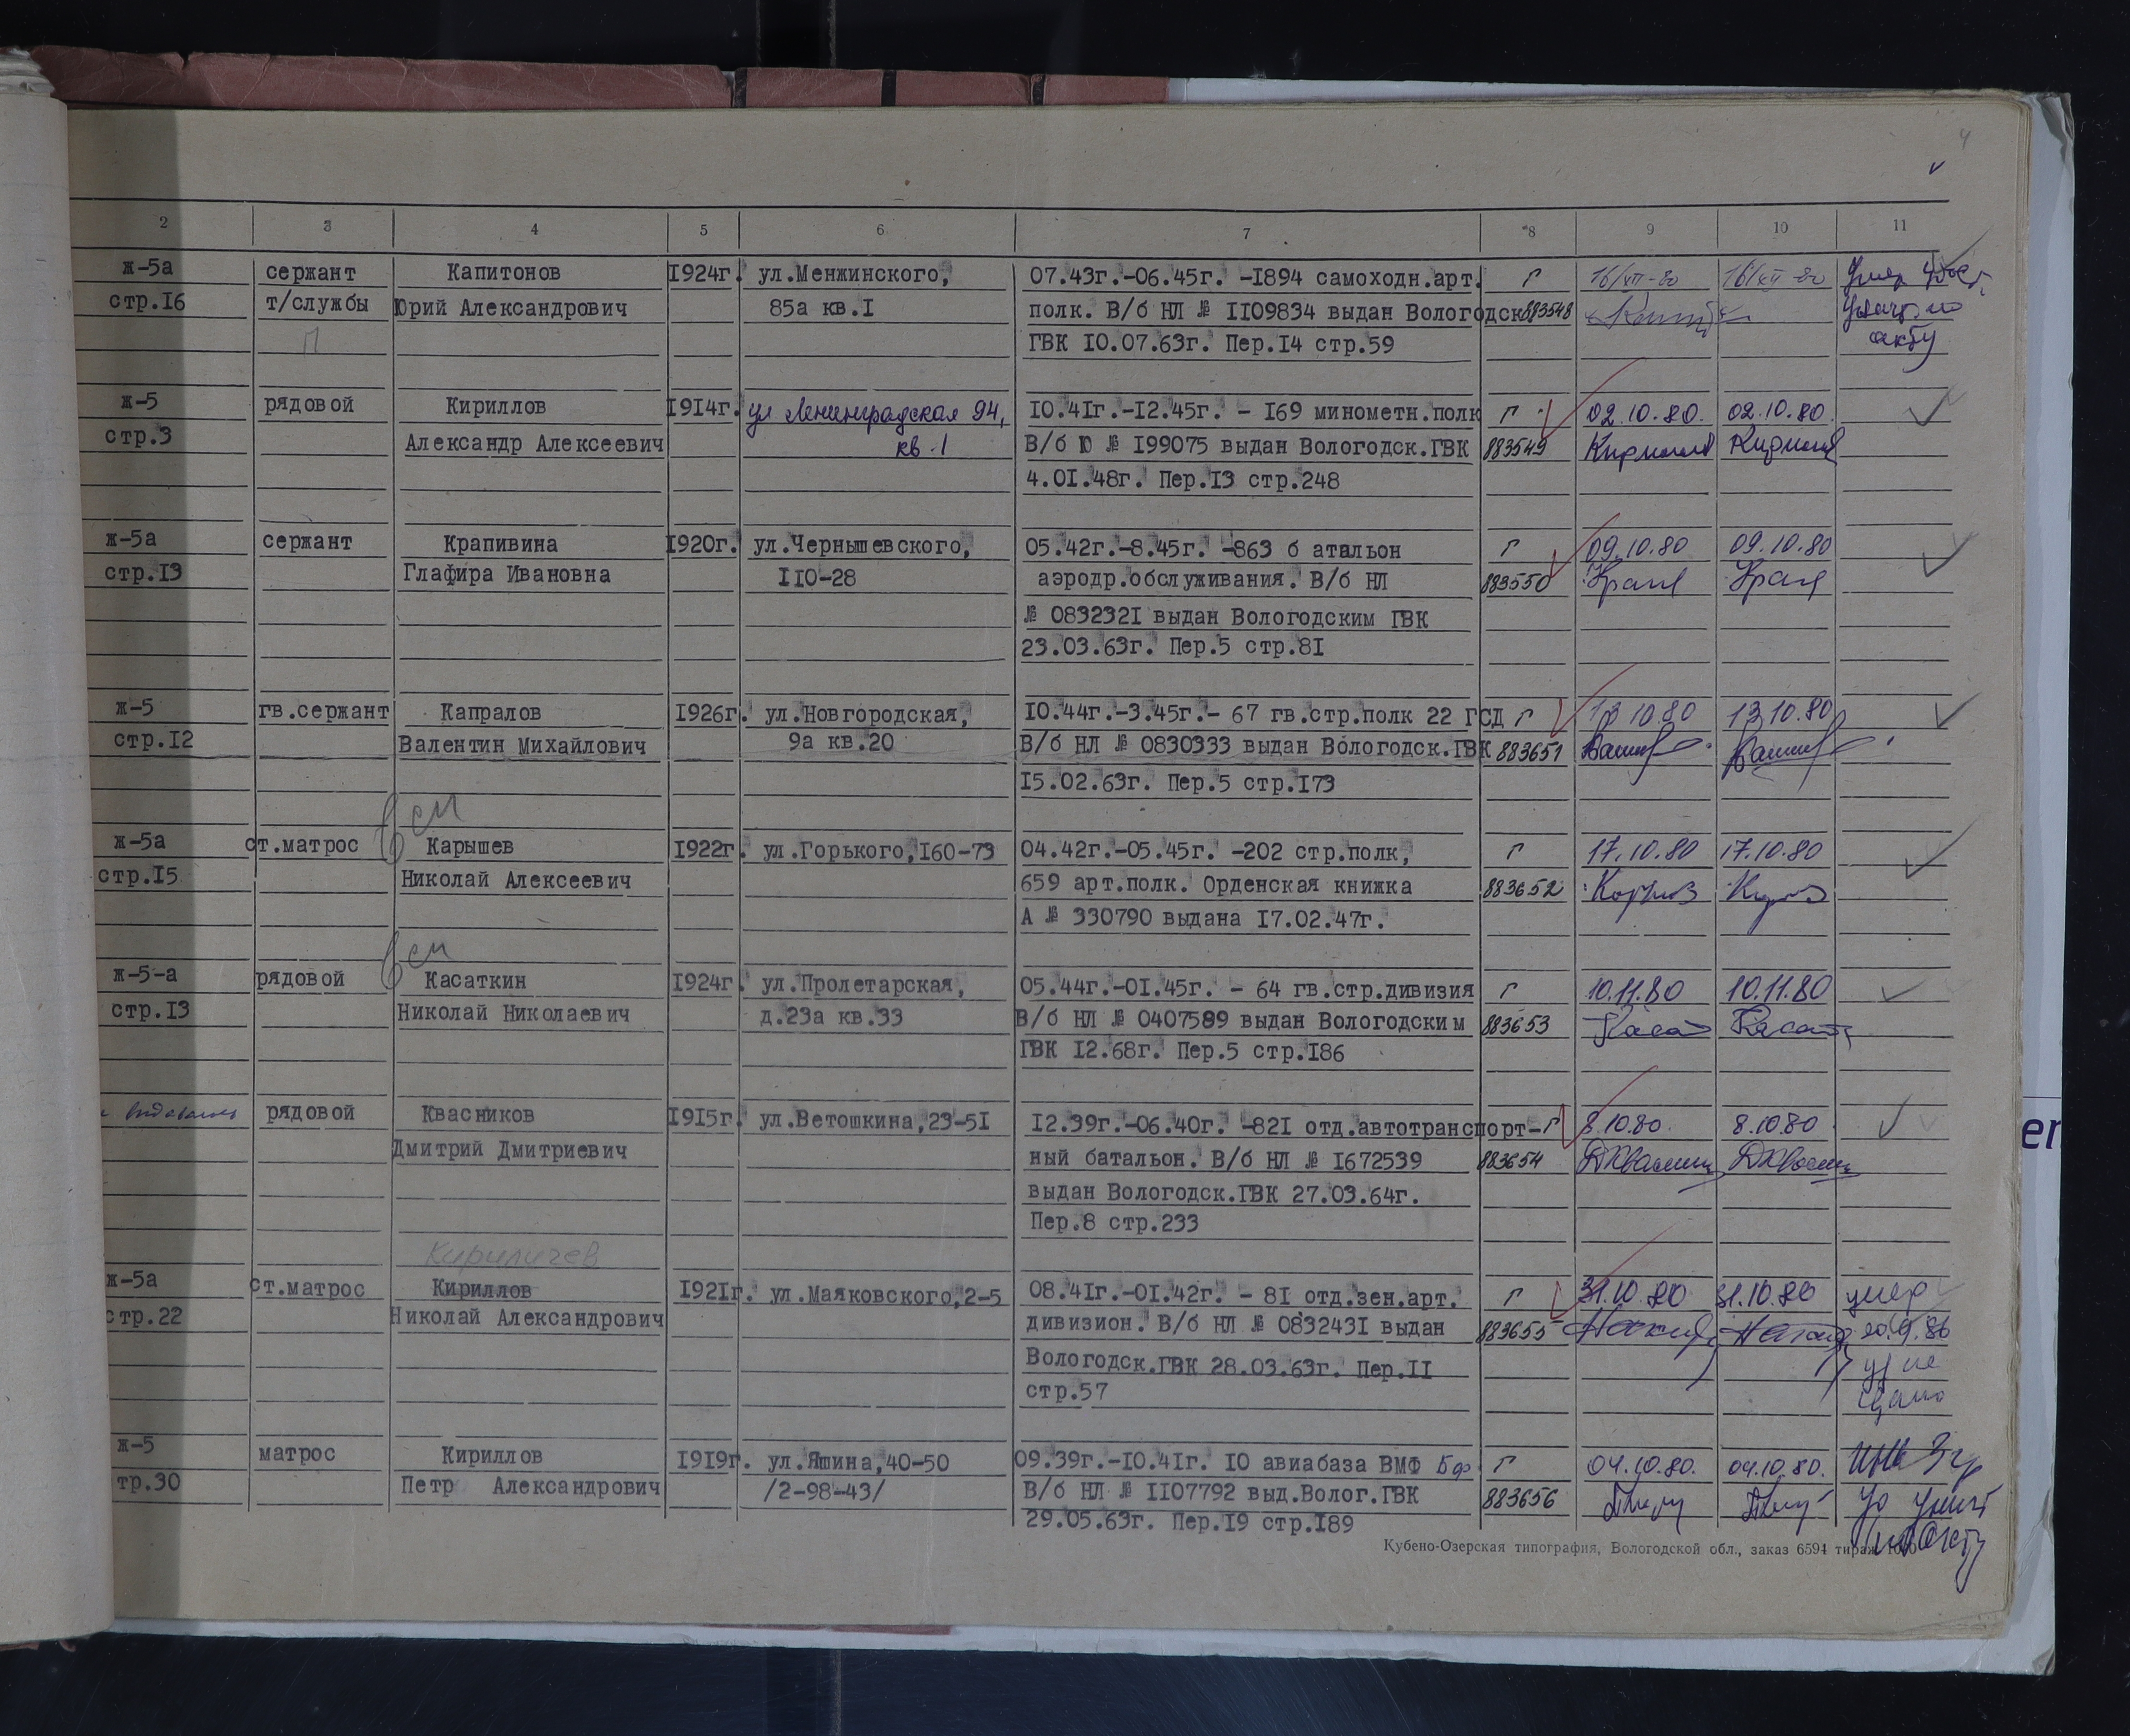 4
2 3 4 5 6 7 8 9 10 11
ж-5а сержант Капитонов 1924г. ул.Менжинского, 07.43г.-06.45г. -1894 самоходн.арт. Г 16/XII-80 16/XII-80 Умер
стр.16 т/службы Юрий Александрович 85а кв.1 полк. В/б НЛ № 1109834 выдан Вологодск 883548
П ГВК 10.07.63г. Пер.14 стр.59 акту
ж-5 рядовой Кириллов 1914г. ул Ленинградская 94, 10.41г.-12.45г. - 169 минометн.полк Г 02.10.80. 02.10.80.
стр.3 Александр Алексеевич кв.1 В/б Ю № 199075 выдан Вологодск.ГВК 883549 Кириллов Кириллов
4.01.48г. Пер.13 стр.248
ж-5а сержант Крапивина 1920г. ул.Чернышевского, 05.42г.-8.45г. -863 б атальон Г 09.10.80 09.10.80
стр.13 Глафира Ивановна 110-28 аэродр.обслуживания. В/б НЛ 883550 Крап Крап
№ 0832321 выдан Вологодским ГВК
23.03.63г. Пер.5 стр.81
ж-5 гв.сержант Капралов 1926г. ул.Новгородская, 10.44г.-3.45г.- 67 гв.стр.полк 22 ГСД Г 13 10.80 13 10.80
стр.12 Валентин Михайлович 9а кв.20 В/б НЛ № 0830333 выдан Вологодск.ГВК 883651
15.02.63г. Пер.5 стр.173
ж-5а ст.матрос Карышев 1922г. ул.Горького,160-73 04.42г.-05.45г. -202 стр.полк, Г 17.10.80 17.10.80
стр.15 Николай Алексеевич 659 арт.полк. Орденская книжка 883652
А № 330790 выдана 17.02.47г.
ж-5-а рядовой Касаткин 1924г. ул.Пролетарская, 05.44г.-01.45г. - 64 гв.стр.дивизия Г 10.11.80 10.11.80
стр.13 Николай Николаевич д.23а кв.33 В/б НЛ № 0407589 выдан Вологодским 883653 Касат Касат
ГВК 12.68г. Пер.5 стр.186
рядовой Квасников 1915г. ул.Ветошкина,23-51 12.39г.-06.40г. -821 отд.автотранспорт- Г 8.10.80. 8.10.80
Дмитрий Дмитриевич ный батальон. В/б НЛ № 1672539 883654
выдан Вологодск.ГВК 27.03.64г.
Пер.8 стр.233
Кириличев
ж-5а ст.матрос Кириллов 1921г. ул.Маяковского,2-5 08.41г.-01.42г. - 81 отд.зен.арт. Г 31.10.80 31.10.80 умер
стр.22 Николай Александрович дивизион. В/б НЛ № 0832431 выдан 883655 20.9.86
Вологодск.ГВК 28.03.63г. Пер.11 уд не
стр.57 сдано
ж-5 матрос Кириллов 1919г. ул.Яшина,40-50 09.39г.-10.41г. 10 авиабаза ВМФ Бф Г 04.10.80. 04.10.80.
тр.30 Петр Александрович /2-98-43/ В/б НЛ № 1107792 выд.Волог.ГВК 883656
29.05.63г. Пер.19 стр.189 акту
Кубено-Озерская типография, Вологодской обл., заказ 6594 тираж
er